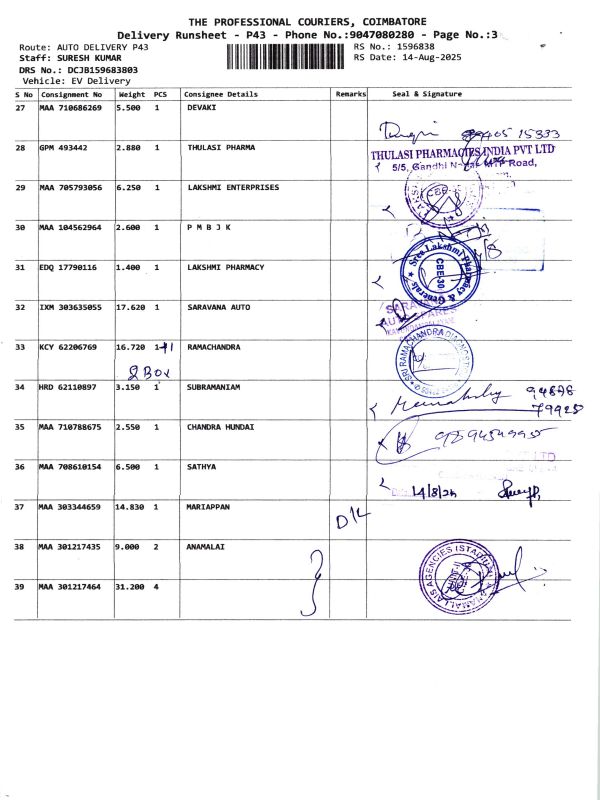 THE PROFESSIONAL COURIERS, COIMBATORE
Delivery Runsheet - P43 - Phone No.:9047080280 - Page No.:3
Route: AUTO DELIVERY P43
RS No.: 1596838
Staff: SURESH KUMAR
RS Date: 14-Aug-2025
DRS No.: DCJB159683803
Vehicle: EV Delivery
S No Consignment No Weight PCS Consignee Details Remarks Seal & Signature
27 MAA 710686269 5.500 1 DEVAKI
15333
28 GPM 493442 2.880 1 THULASI PHARMA
THULASI PHARMACIES INDIA PVT LTD
5/5, Gandhi Road,
29 MAA 705793056 6.250 1 LAKSHMI ENTERPRISES
30 MAA 104562964 2.600 1 P M B J K
31 EDQ 17790116 1.400 1 LAKSHMI PHARMACY
Sree Lakshmi Pharmacy & Generals
CBE-30
32 IXM 303635055 17.620 1 SARAVANA AUTO
33 KCY 62206769 16.720 1+1 RAMACHANDRA
2 Box
SRI RAMACHANDRA
34 HRD 62110897 3.150 1 SUBRAMANIAM
79925
35 MAA 710788675 2.550 1 CHANDRA HUNDAI
9894549995
LTD
36 MAA 708610154 6.500 1 SATHYA
14/8/25
37 MAA 303344659 14.830 1 MARIAPPAN
D/L
38 MAA 301217435 9.000 2 ANAMALAI
39 MAA 301217464 31.200 4
AGENCIES